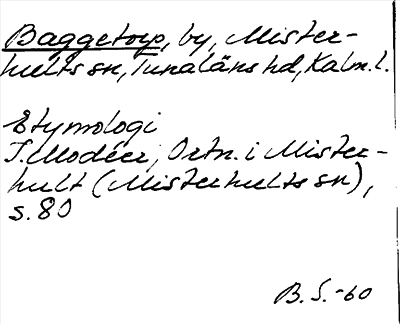 Baggetorp, by, Mister-
hults sn, Tunaläns hd, Kalm. l.
Etymologi
I. Modéer, Ortn. i Mister-
hult (Misterhults sn),
s. 80
B. S. -60